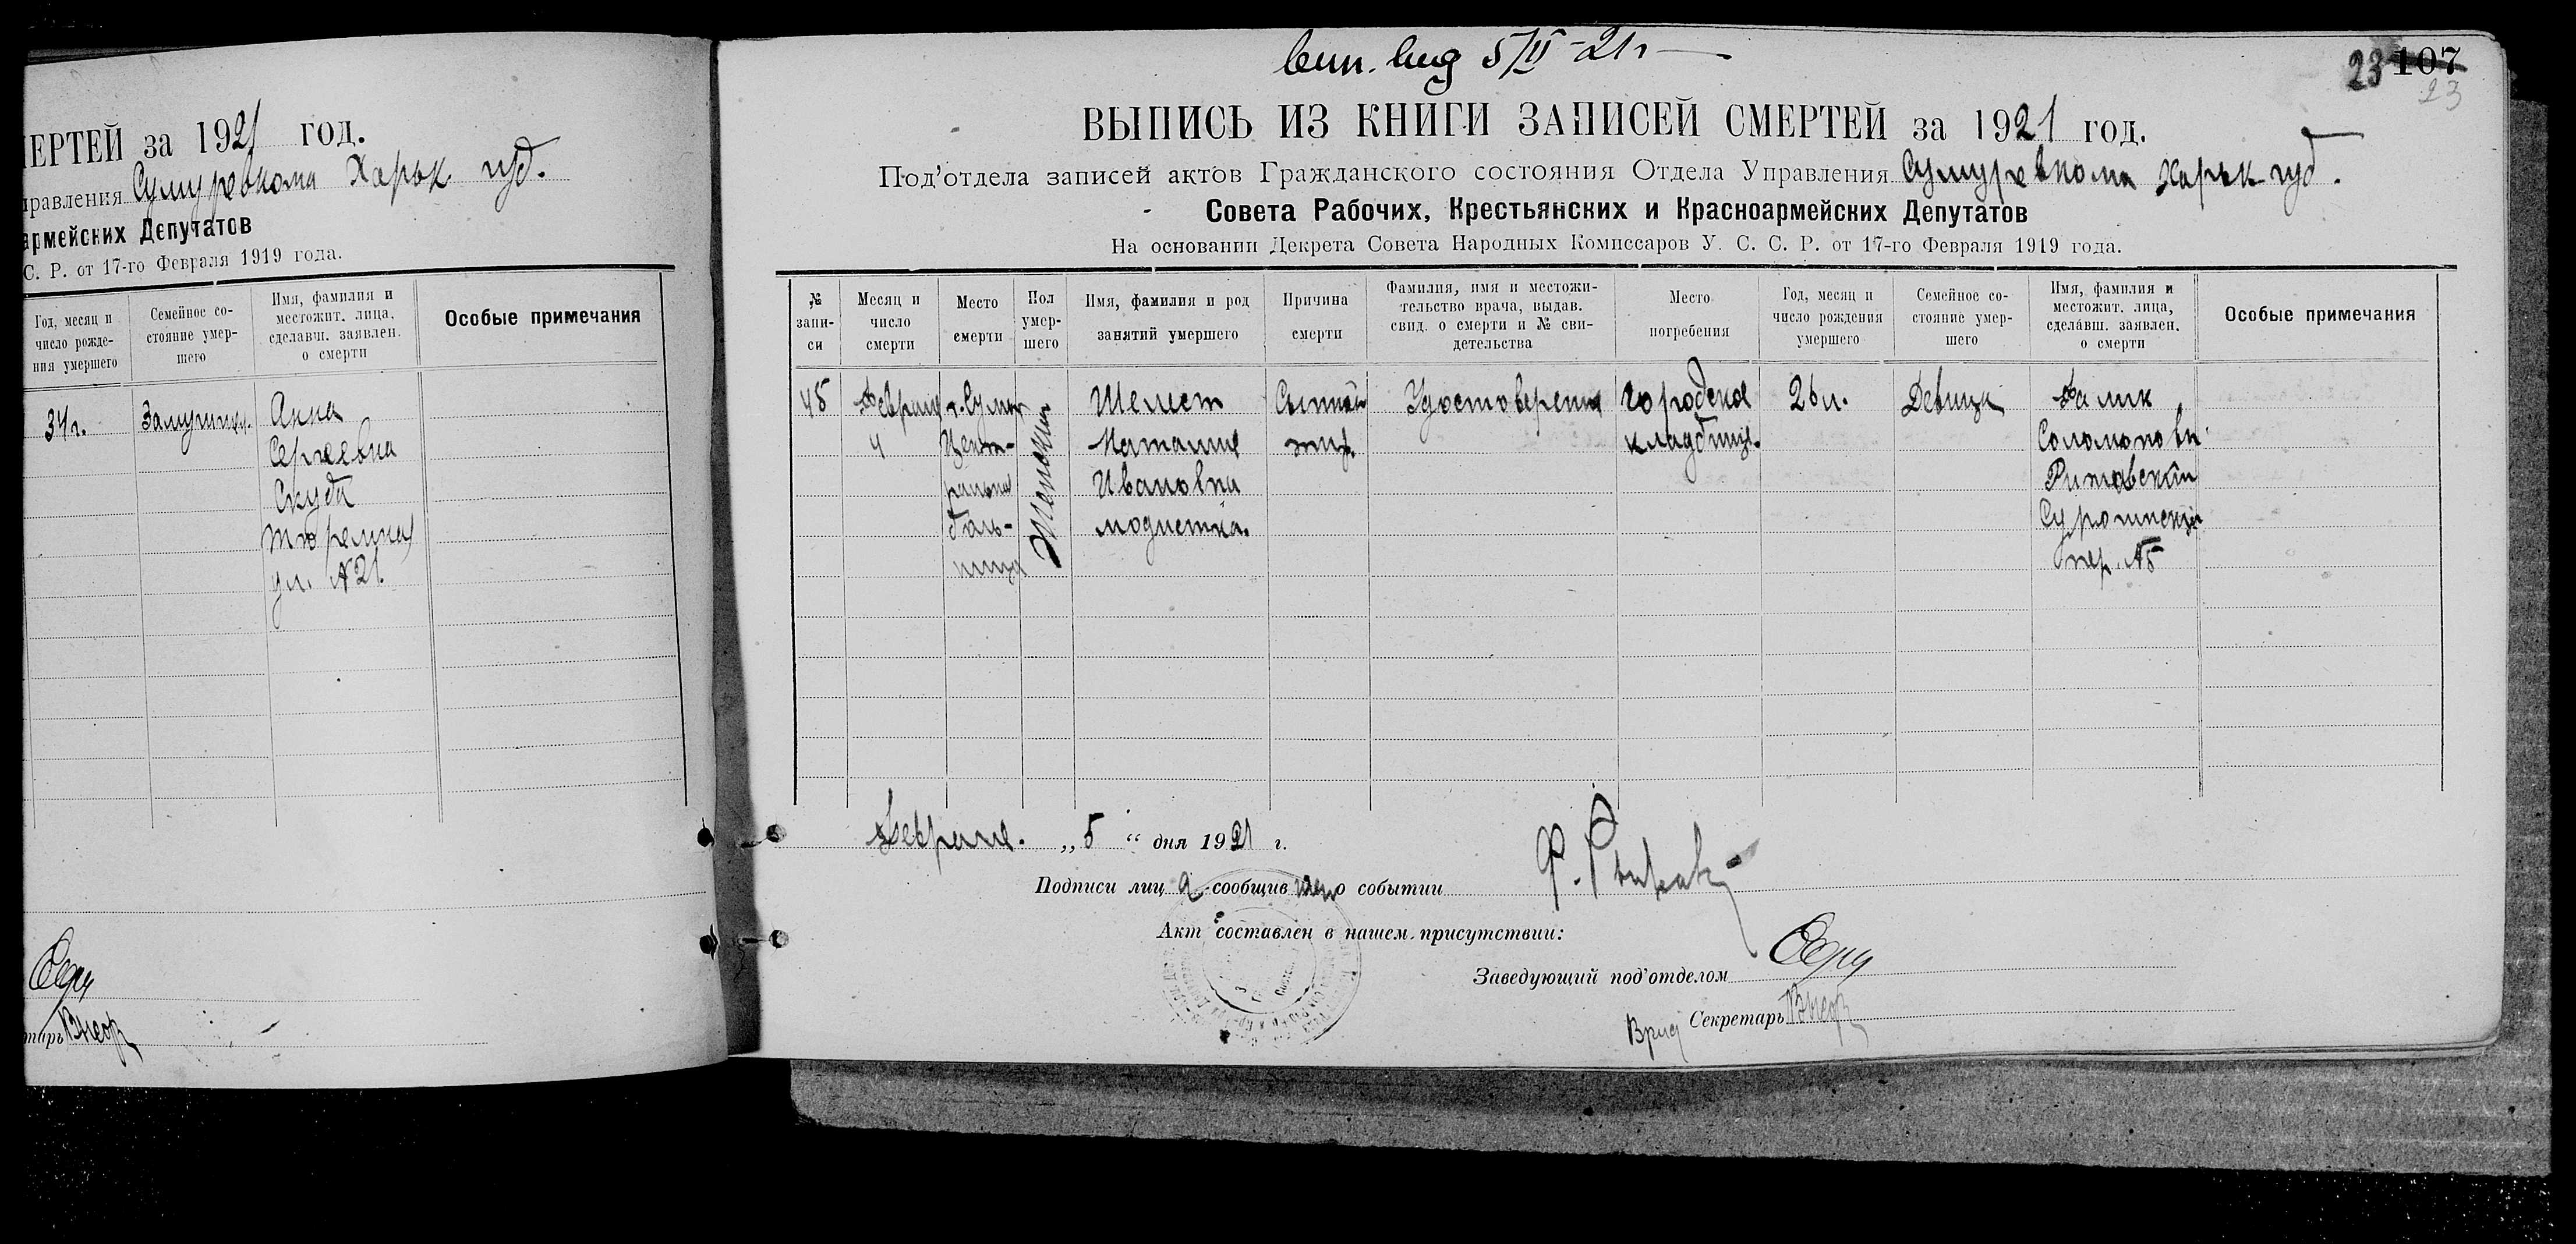 МЕРТЕЙ за 1921 год.
правления Сумуревкома Харьк губ.
армейских Депутатов
С. Р. от 17-го Февраля 1919 года.
Год, месяц и число рожде-ния умершего
Семейное со-стояние умер-шего
Имя, фамилия и местожит. лица, сделавш. заявлен. о смерти
Особые примечания
34г.
Замужняя.
Анна
Сергеевна
Скуба
Тюремная
ул. №21.
тарь
вып. выд 5/II-21г
23 107
23
ВЫПИСЬ ИЗ КНИГИ ЗАПИСЕЙ СМЕРТЕЙ за 1921 год.
Под'отдела записей актов Гражданского состояния Отдела Управления Сумуревкома Харьк губ.
Совета Рабочих, Крестьянских и Красноармейских Депутатов
На основании Декрета Совета Народных Комиссаров У. С. С. Р. от 17-го Февраля 1919 года.
№ запи-си
Месяц и число смерти
Место смерти
Пол умер-шего
Имя, фамилия и род занятий умершего
Причина смерти
Фамилия, имя и местожи-тельство врача, выдав. свид. о смерти и № сви-детельства
Место погребения
Год, месяц и число рождения умершего
Семейное со-стояние умер-шего
Имя, фамилия и местожит. лица, сделавш. заявлен. о смерти
Особые примечания
45
Февраля
4
г. Сумы
Цент-
ральная
боль-
ница
Женский
Шелест
Наталия
Ивановна
модистка.
Сыпной
тиф.
Удостоверение
Городское
кладбище.
26 л.
Девица
Фалик
Соломонови
Ритавский
пер. №5
Февраля. „5“ дня 1921 г.
Подписи лица сообщившего о событии
Акт составлен в нашем присутствии:
Заведующий под'отделом
Врид Секретарь